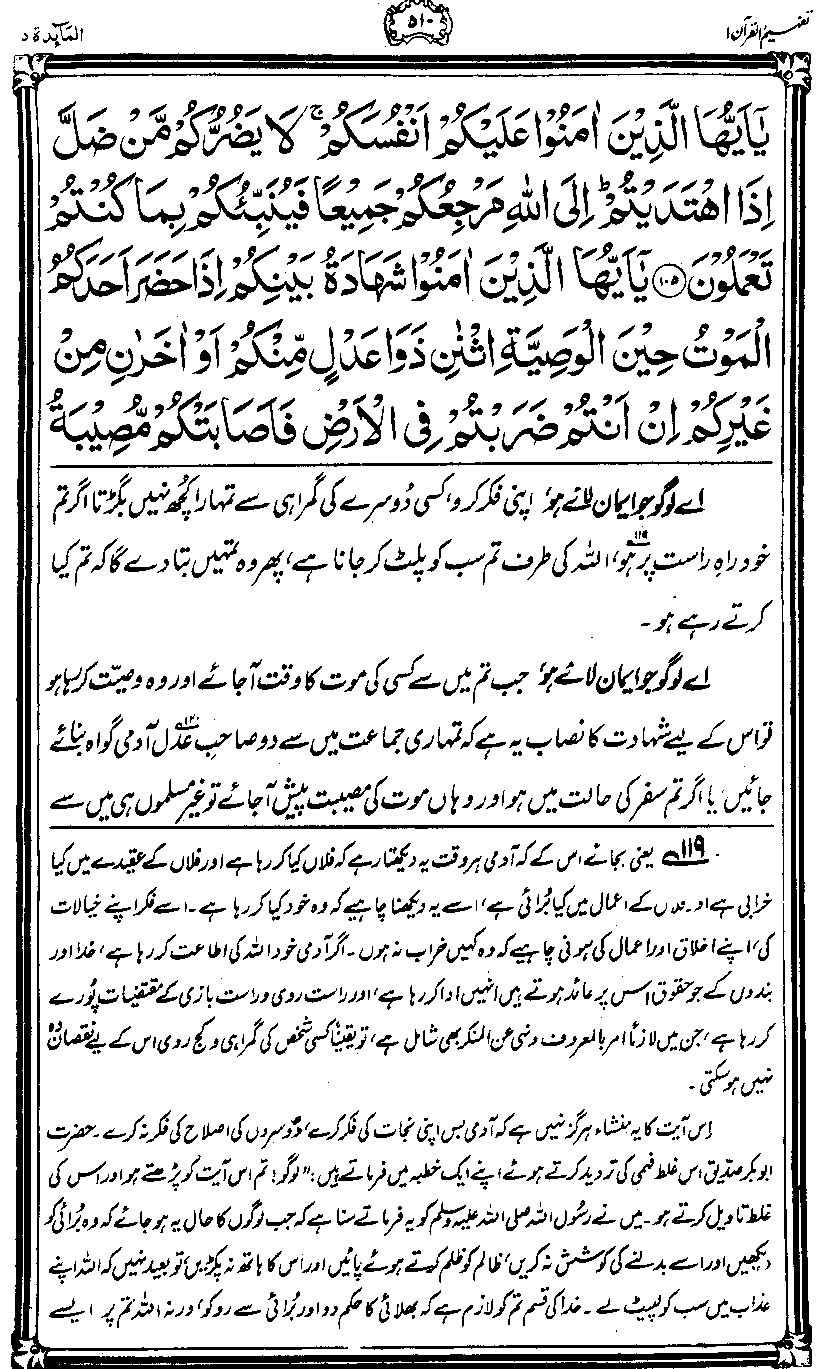 تفہیم القرآن ۱
۵۱۰
المآئدۃ ۵
یٰۤاَیُّهَا الَّذِیْنَ اٰمَنُوْا عَلَیْكُمْ اَنْفُسَكُمْ ۚ لَا یَضُرُّكُمْ مَّنْ ضَلَّ
اِذَا اهْتَدَیْتُمْ ؕ اِلَى اللّٰهِ مَرْجِعُكُمْ جَمِیْعًا فَیُنَبِّئُكُمْ بِمَا كُنْتُمْ
تَعْمَلُوْنَ ۝۱۰۵ یٰۤاَیُّهَا الَّذِیْنَ اٰمَنُوْا شَهَادَةُ بَیْنِكُمْ اِذَا حَضَرَ اَحَدَكُمُ
الْمَوْتُ حِیْنَ الْوَصِیَّةِ اثْنٰنِ ذَوَا عَدْلٍ مِّنْكُمْ اَوْ اٰخَرٰنِ مِنْ
غَیْرِكُمْ اِنْ اَنْتُمْ ضَرَبْتُمْ فِی الْاَرْضِ فَاَصَابَتْكُمْ مُّصِیْبَةُ
اے لوگو جو ایمان لائے ہو، اپنی فکر کرو، کسی دُوسرے کی گمراہی سے تمہارا کچھ نہیں بگڑتا اگر تم
خود راہِ راست پر ہو،۱۱۹ اللہ کی طرف تم سب کو پلٹ کر جانا ہے، پھر وہ تمہیں بتا دے گا کہ تم کیا
کرتے رہے ہو۔
اے لوگو جو ایمان لائے ہو، جب تم میں سے کسی کی موت کا وقت آجائے اور وہ وصیّت کر رہا ہو
تو اس کے لیے شہادت کا نصاب یہ ہے کہ تمہاری جماعت میں سے دو صاحبِ عدل۱۲۰ آدمی گواہ بنائے
جائیں، یا اگر تم سفر کی حالت میں ہو اور وہاں موت کی مصیبت پیش آجائے تو غیر مسلموں ہی میں سے
۱۱۹ یعنی بجائے اس کے کہ آدمی ہر وقت یہ دیکھتا رہے کہ فلاں کیا کر رہا ہے اور فلاں کے عقیدے میں کیا
خرابی ہے اور فلاں کے اعمال میں کیا بُرائی ہے، اسے یہ دیکھنا چاہیے کہ وہ خود کیا کر رہا ہے۔ اسے فکر اپنے خیالات
کی، اپنے اخلاق اور اعمال کی ہونی چاہیے کہ وہ کہیں خراب نہ ہوں۔ اگر آدمی خود اللہ کی اطاعت کر رہا ہے، خدا اور
بندوں کے جو حقوق اس پر عائد ہوتے ہیں انہیں ادا کر رہا ہے، اور راست روی و راست بازی کے مقتضیات پُورے
کر رہا ہے، جن میں لازماً امر بالمعروف و نہی عن المنکر بھی شامل ہے، تو یقیناً کسی شخص کی گمراہی و کج روی اس کے لیے نقصان دہ
نہیں ہو سکتی۔
اِس آیت کا یہ منشاء ہرگز نہیں ہے کہ آدمی بس اپنی نجات کی فکر کرے، دُوسروں کی اصلاح کی فکر نہ کرے۔ حضرت
ابو بکر صدّیق اس غلط فہمی کی تردید کرتے ہوئے اپنے ایک خطبہ میں فرماتے ہیں: "لوگو! تم اس آیت کو پڑھتے ہو اور اس کی
غلط تاویل کرتے ہو۔ میں نے رسُول اللہ صلی اللہ علیہ وسلم کو یہ فرماتے سنا ہے کہ جب لوگوں کا حال یہ ہو جائے کہ وہ بُرائی کو
دیکھیں اور اسے بدلنے کی کوشش نہ کریں، ظالم کو ظلم کرتے ہوئے پائیں اور اس کا ہاتھ نہ پکڑیں، تو بعید نہیں کہ اللہ اپنے
عذاب میں سب کو لپیٹ لے۔ خدا کی قسم تم کو لازم ہے کہ بھلائی کا حکم دو اور بُرائی سے روکو، ورنہ اللہ تم پر ایسے